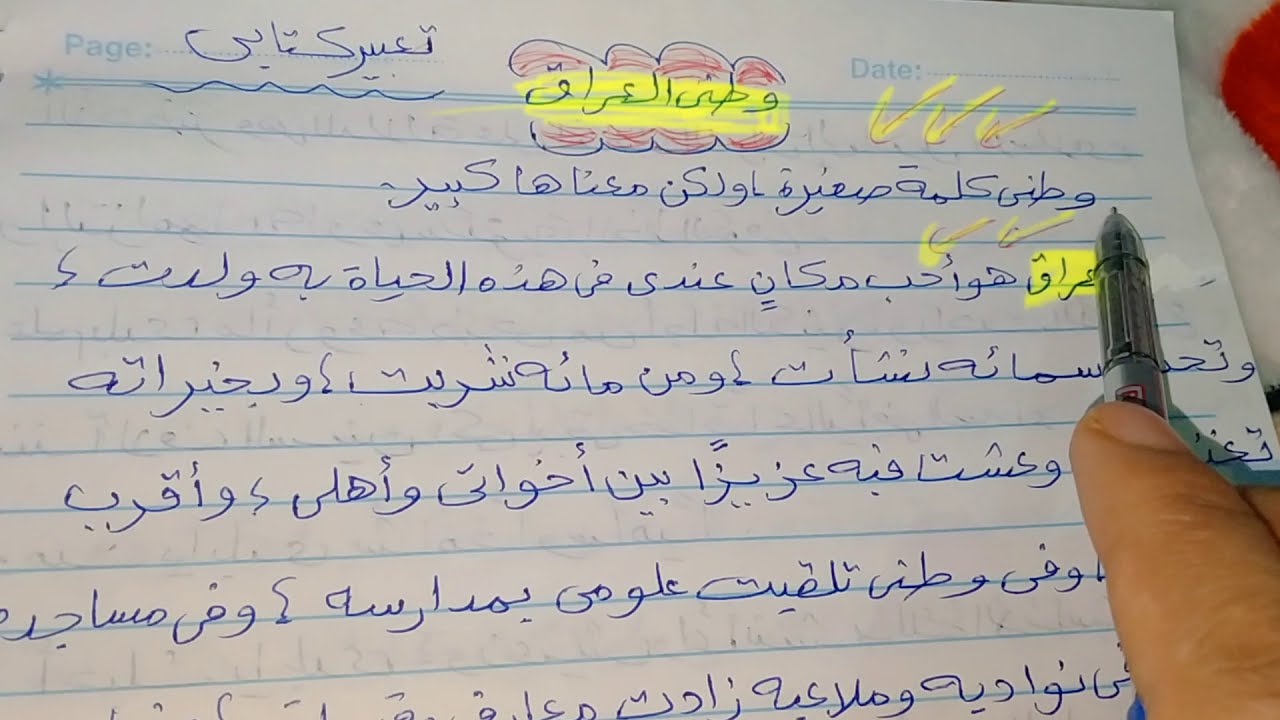 Page: تعبير كتابي Date:
وطني العراق
وطني كلمة صغيرة، ولكن معناها كبير.
عراق هو أحب مكانٍ عندي في هذه الحياة به ولدت،
وتحت سمائه نشأت، ومن مائه شربت، وبخيراته
وعشت فيه عزيزًا بين أخواتي وأهلي، وأقرب
وفي وطني تلقيت علومي بمدارسه، وفي مساجده
نواديه وملاعبه زادت